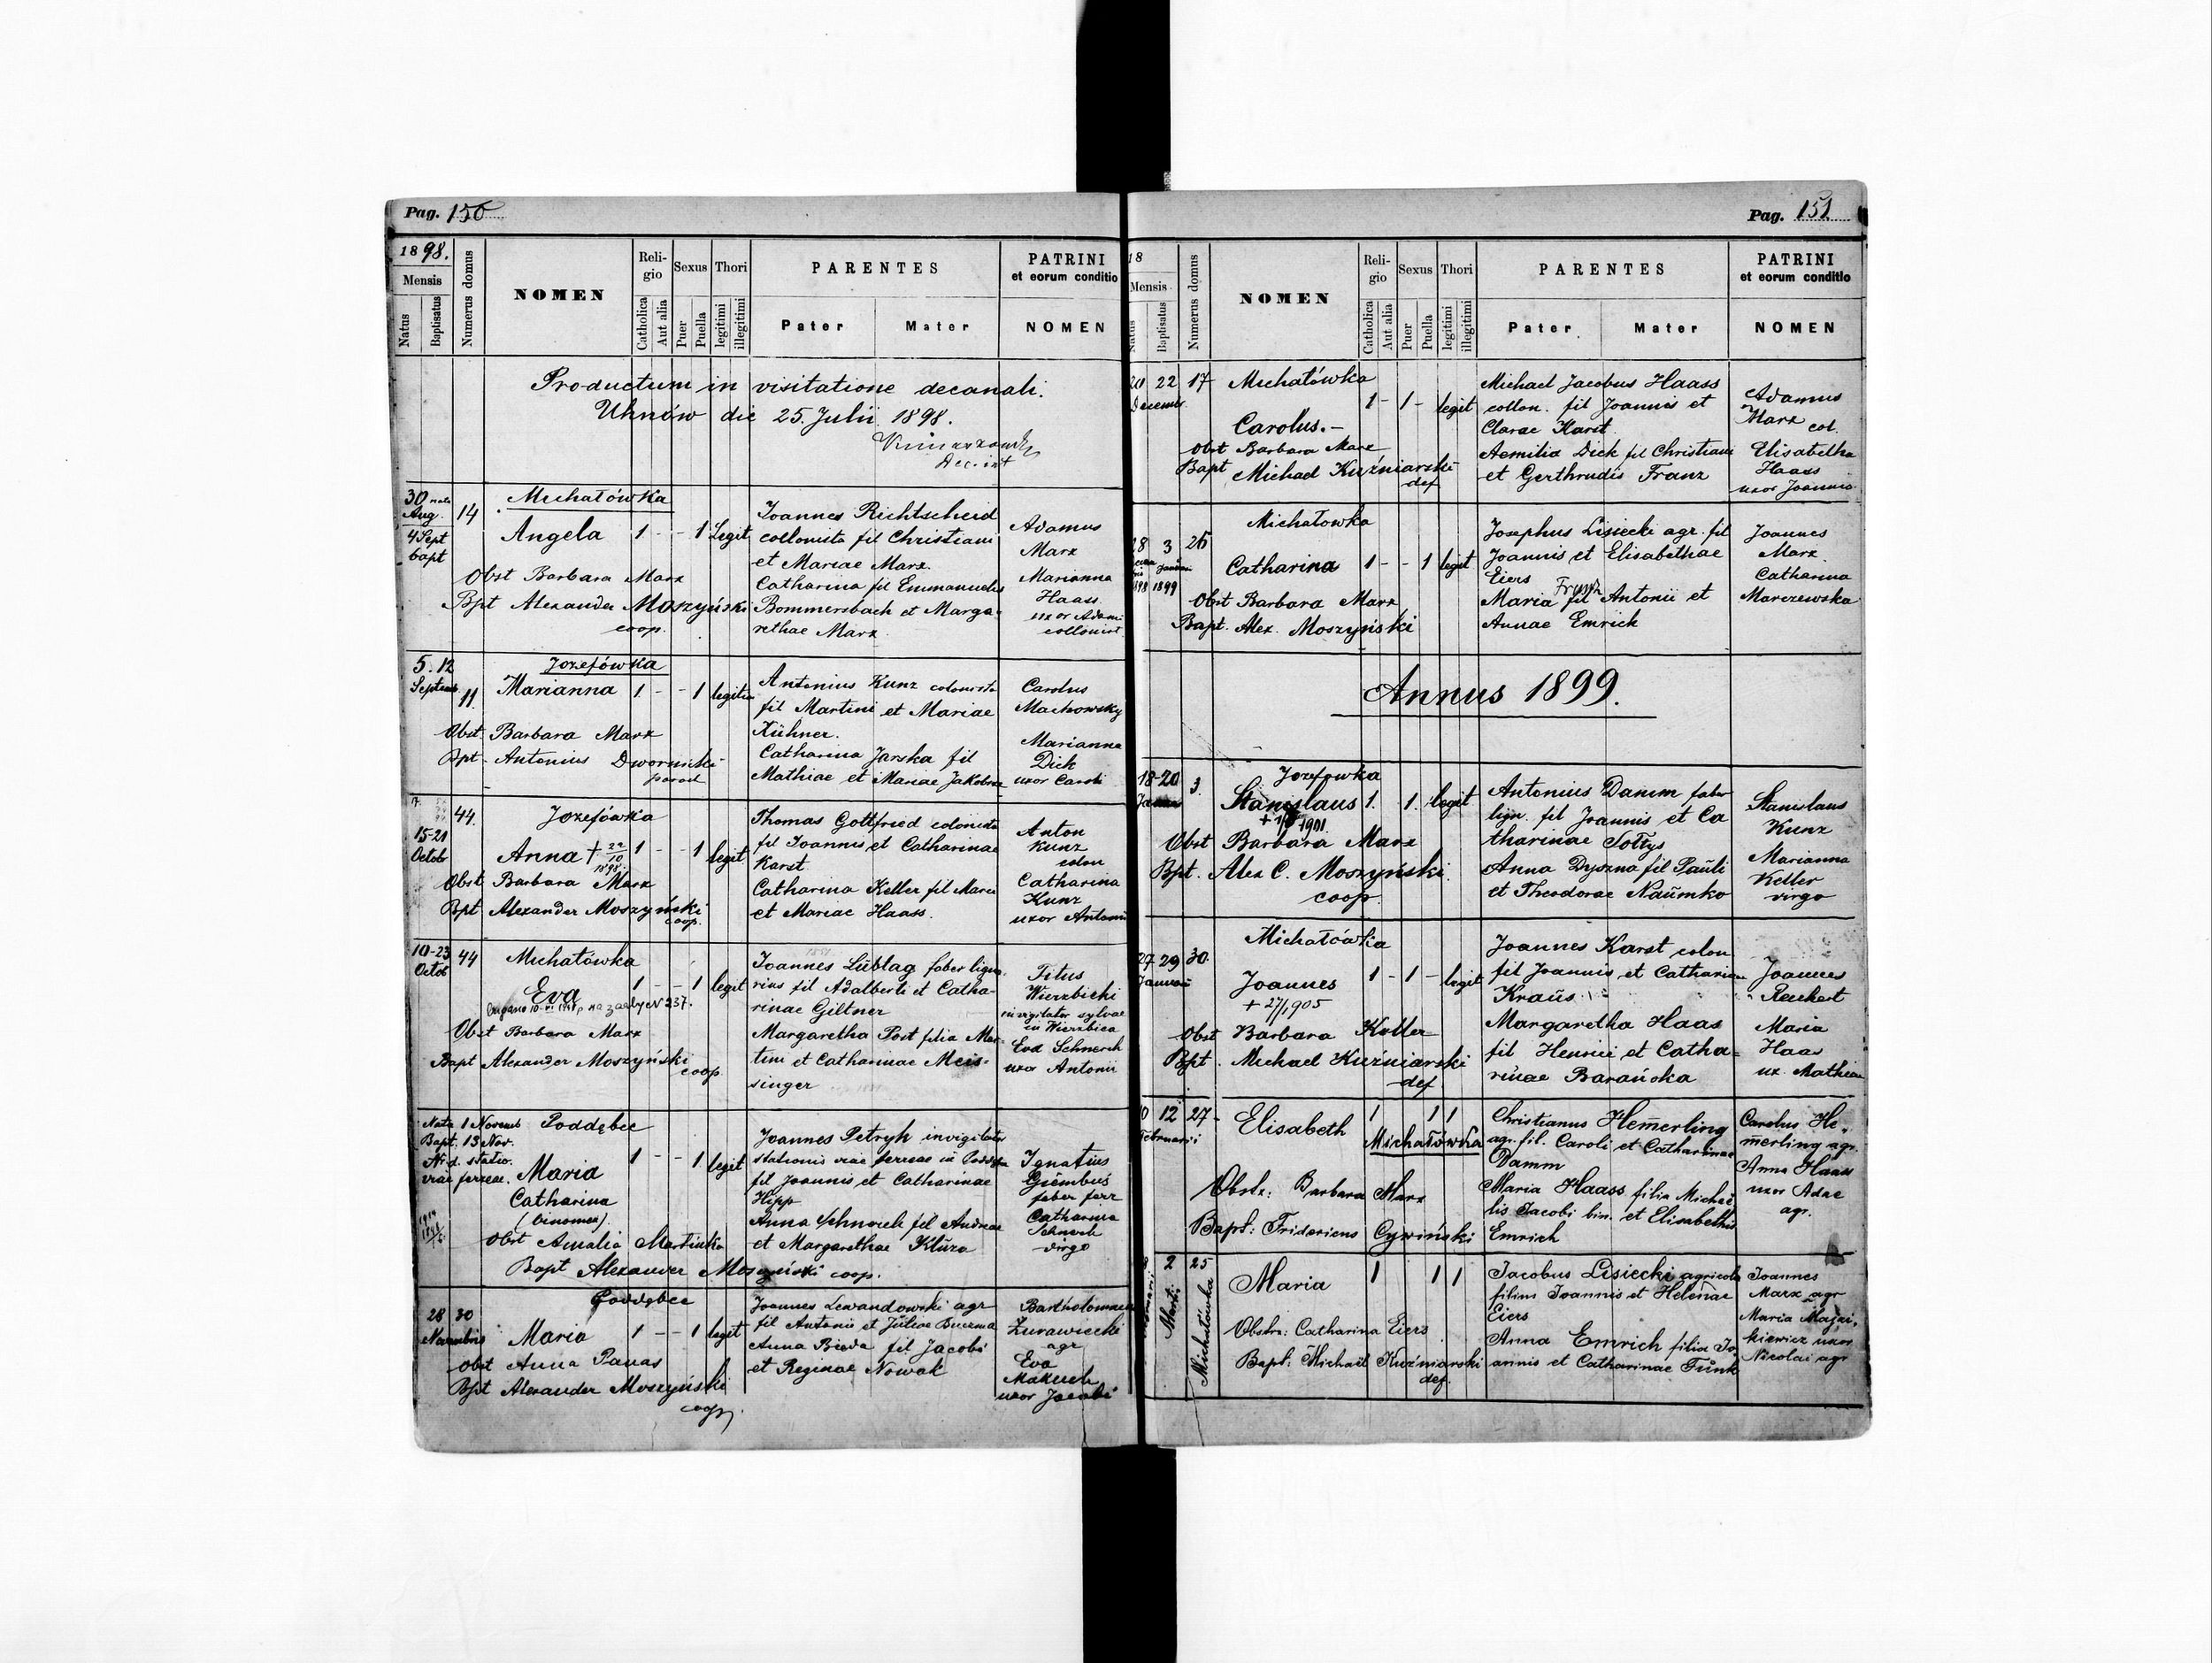 Pag. 150
1898.
Mensis
Natus
Baptisatus
Numerus domus
NOMEN
Religio
Catholica
Aut alia
Sexus
Puer
Puella
Thori
legitimi
illegitimi
PARENTES
Pater
Mater
PATRINI
et eorum conditio
NOMEN
Productum in visitatione decanali.
Uhnów die 25. Julii 1898.
30 nata
Aug.
4 Sept
bapt
14
Michałówka
Angela 1 - - 1 Legit
Obst Barbara Marx
Bpt Alexander Moszyński
coop.
Joannes Richtscheid
collonista fil Christiani
et Mariae Marx.
Catharina fil Emmanuelis
Bommersbach et Marga-
rethae Marx
Adamus
Marx
Marianna
Haass
uxor Adami
collonist
5. 12
Septemb.
11.
Jozefówka
Marianna 1 - - 1 legitim
Obst. Barbara Marx
Bpt - Antonius Dwornicki
paroch
Antonius Kunz colonista
fil Martini et Mariae
Kühner.
Catharina Jarska fil
Mathiae et Mariae Jakobina
Carolus
Machowsky
Marianna
Dick
uxor Caroli
15-21
Octobr
44.
Jozefówka
Anna + 22/10 1898 1 - - 1 legit
Obst Barbara Marx
Bpt Alexander Moszyński
coop.
Thomas Gottfried colonista
fil Joannis et Catharinae
Karst
Catharina Keller fil Marci
et Mariae Haass.
Anton
Kunz
colon
Catharina
Kunz
uxor Antonii
10-23
Octob
44
Michałówka
Eva 1 - - 1 legit
Obst Barbara Marx
Bapt Alexander Moszyński
coop.
Joannes Lieblag faber ligna-
rius fil Adalberti et Catha-
rinae Giltner
Margaretha Port filia Mar-
tini et Catharinae Meis-
singer
Titus
Wierzbicki
invigilator sylvae
in Wierzbica
Eva Schnerch
uxor Antonii
Nata 1 Novemb
Bapt. 13 Nov.
N: d. statio.
viae ferreae.
Poddębce
Maria 1 - - 1 legit
Catharina
(binomen).
Obst Amalia Martinka
Bapt Alexander Moszyński coop.
Joannes Petryk invigilator
stationis viae ferreae in Poddębce
fil Joannis et Catharinae
Hipp
Anna Schnerch fil Andreae
et Margarethae Kluza
Ignatius
Giembuś
faber ferr
Catharina
Schnerch
virgo
28 30
Novembris
Poddębce
Maria 1 - - 1 legit
Obst Anna Panas
Bpt Alexander Moszyński
coop.
Joannes Lewandowski agr
fil Antonii et Juliae Buczma
Anna Bieda fil Jacobi
et Reginae Nowak
Bartholomaeus
Żurawiecki
agr
Eva
Makuch
uxor Jacobi
Pag. 151
18
Mensis
Natus
Baptisatus
Numerus domus
NOMEN
Religio
Catholica
Aut alia
Sexus
Puer
Puella
Thori
legitimi
illegitimi
PARENTES
Pater
Mater
PATRINI
et eorum conditio
NOMEN
20 22 17
Decemr.
Michałówka
1 - 1 - legit
Carolus.-
Obst Barbara Marx
Bapt Michael Kuźniarski
def
Michael Jacobus Haass
collon. fil Joannis et
Clarae Karst
Aemilia Dick fil Christiani
et Gerthrudis Franz
Adamus
Marx
col.
Elisabetha
Haass
uxor Joannis
28 3 26
1898 1899
Michałowka
Catharina 1 - - 1 legit
Obst Barbara Marx
Bapt. Alex. Moszyński
Josephus Lisiecki agr. fil
Joannis et Elisabethae
Eiers
Maria fil Antonii et
Annae Emrich
Joannes
Marx
Catharina
Marczewska
Annus 1899.
18-20 3.
Januar
Jozefowka
Stanislaus 1. 1. legit
1901.
Obst Barbara Marx
Bpt. Alex C. Moszyński
coop
Antonius Damm faber
lign. fil Joannis et Ca
tharinae Sołtys
Anna Dyszna fil Pauli
et Theodorae Naumko
Stanislaus
Kunz
Marianna
Keller
virgo
27 29 30
Januarii
Michałówka
Joannes 1 - 1 - legit
+ 27/1905
Obst Barbara Keller
Bpt. Michael Kuźniarski
def
Joannes Karst colon
fil Joannis et Catharinae
Kraus
Margaretha Haas
fil Henrici et Catha-
rinae Barańska
Joannes
Reichert
Maria
Haas
ux. Mathiae
10 12 27
Februarii
Elisabeth 1 1 1
Michałówka
Obstr: Barbara Marx
Bapt: Fridericus Cywiński
Christianus Hemerling
agr. fil. Caroli et Catharinae
Damm
Maria Haass filia Michaë
lis Jacobi bin. et Elisabethis
Emrich
Carolus He-
merling agr.
Anna Haass
uxor Adae
agr.
2 25
Martii
Michałówka
Maria 1 1 1
Obstr: Catharina Eiers
Bapt: Michaël Kuźniarski
def.
Jacobus Lisiecki agricola
filius Joannis et Helenae
Eiers
Anna Emrich filia Jo
annis et Catharinae Funk
Joannes
Marx agr
Maria Majzi-
kiewicz uxor
Nicolai agr